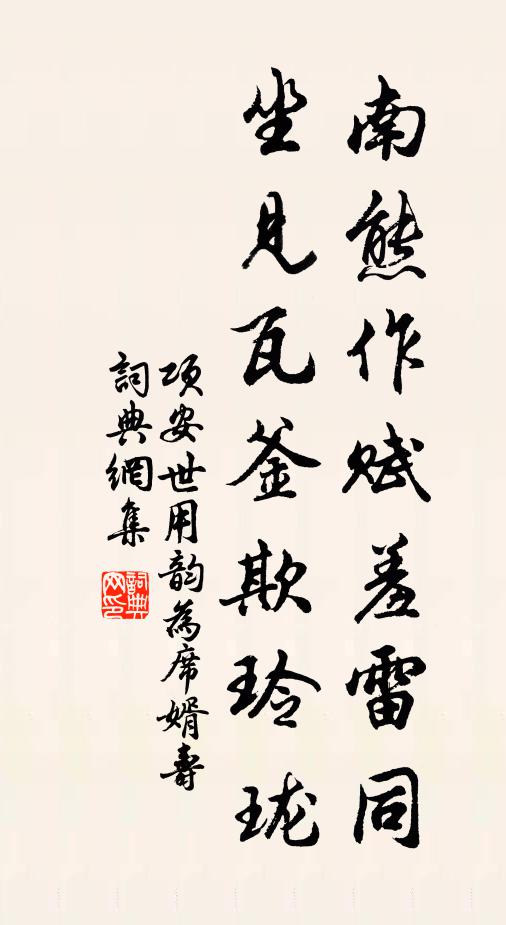 南熊作赋羞雷同
坐見瓦釜欺玲珑
项安世用韵為席婿壽
詞典網集
詞典网印